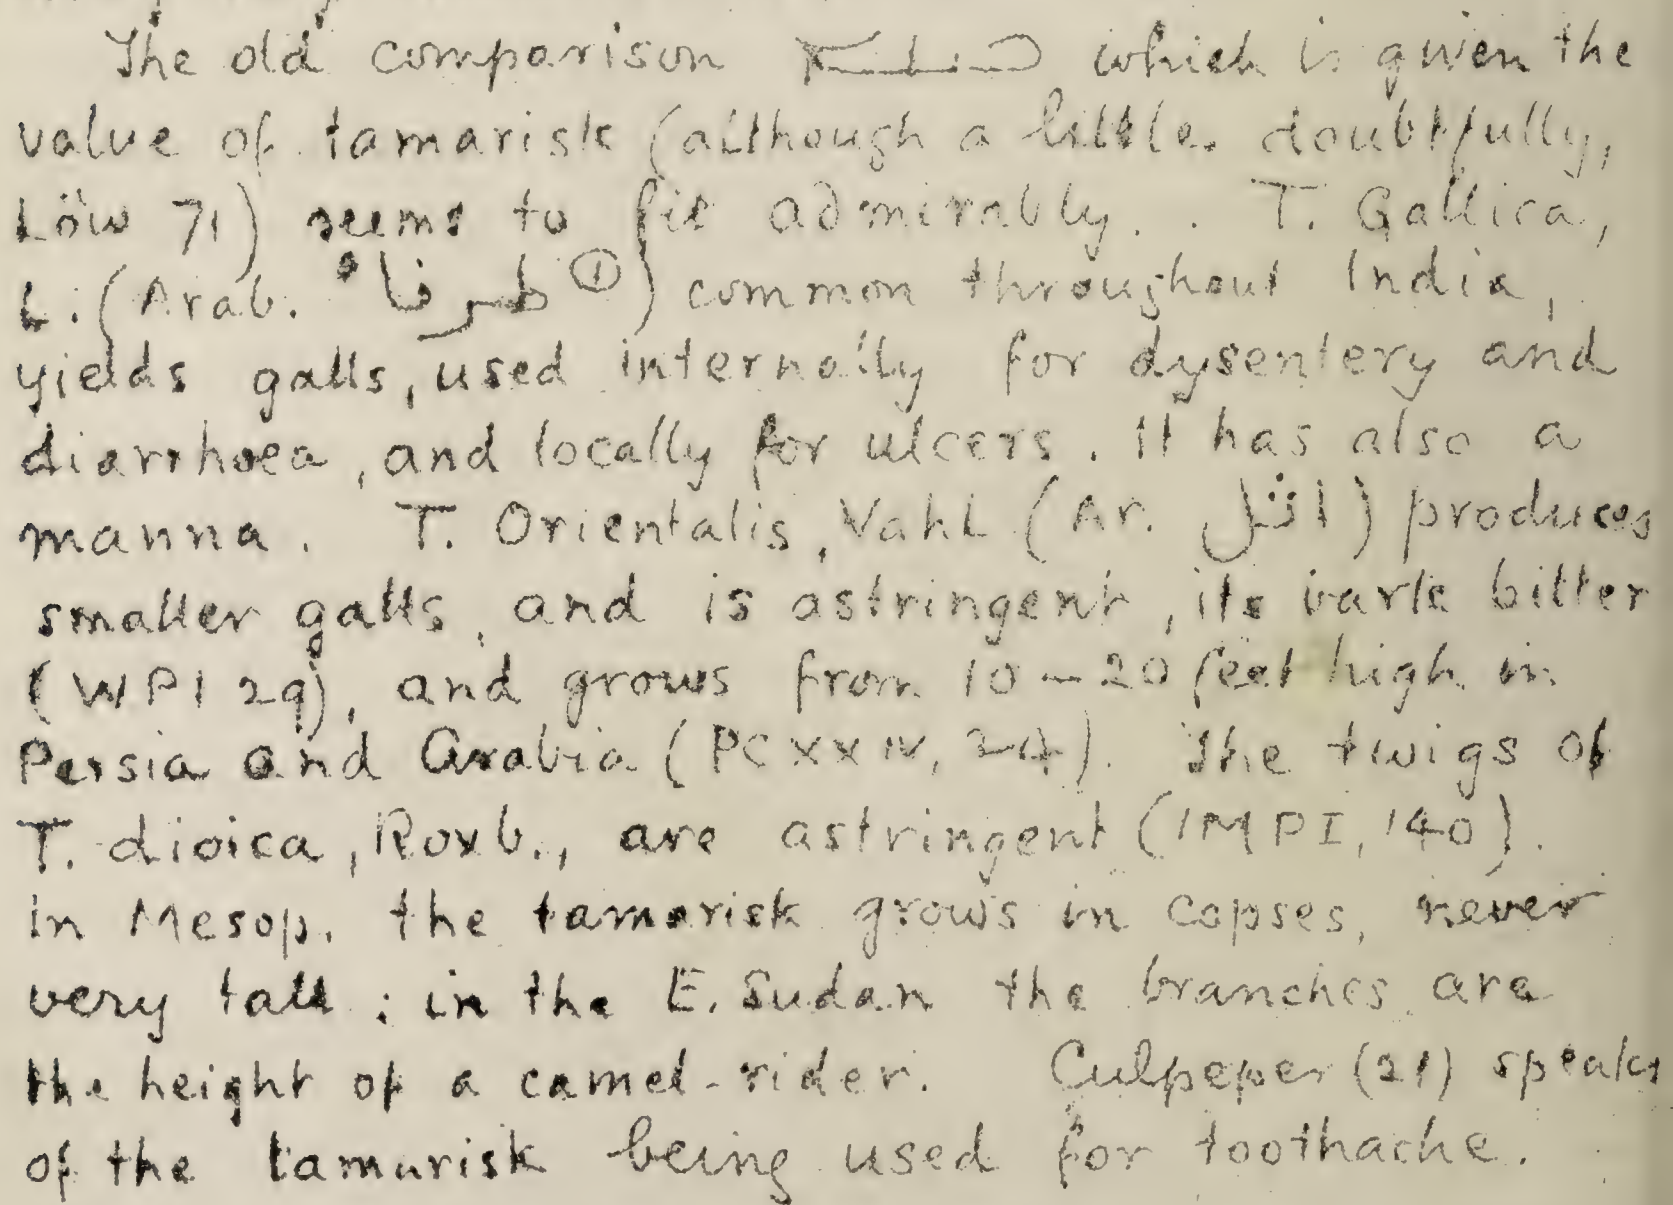 The old comparison which is given the
value of tamarisk (although a little doubtfully,
Löw 71) seems to fit admirably. . T. Gallica,
L. (Arab. طرفاء ①) common throughout India,
yields galls, used internally for dysentery and
diarrhoea, and locally for ulcers. It has also a
manna. T. Orientalis, Vahl (Ar. اثل) produces
smaller galls, and is astringent, its bark bitter
(WPI 29), and grows from 10-20 feet high in
Persia and Arabia (PC XXIV, 24). The twigs of
T. dioica, Roxb., are astringent (IMPI, 140).
In Mesop. the tamarisk grows in copses, never
very tall; in the E. Sudan the branches are
the height of a camel-rider. Culpeper (21) speaks
of the tamarisk being used for toothache.